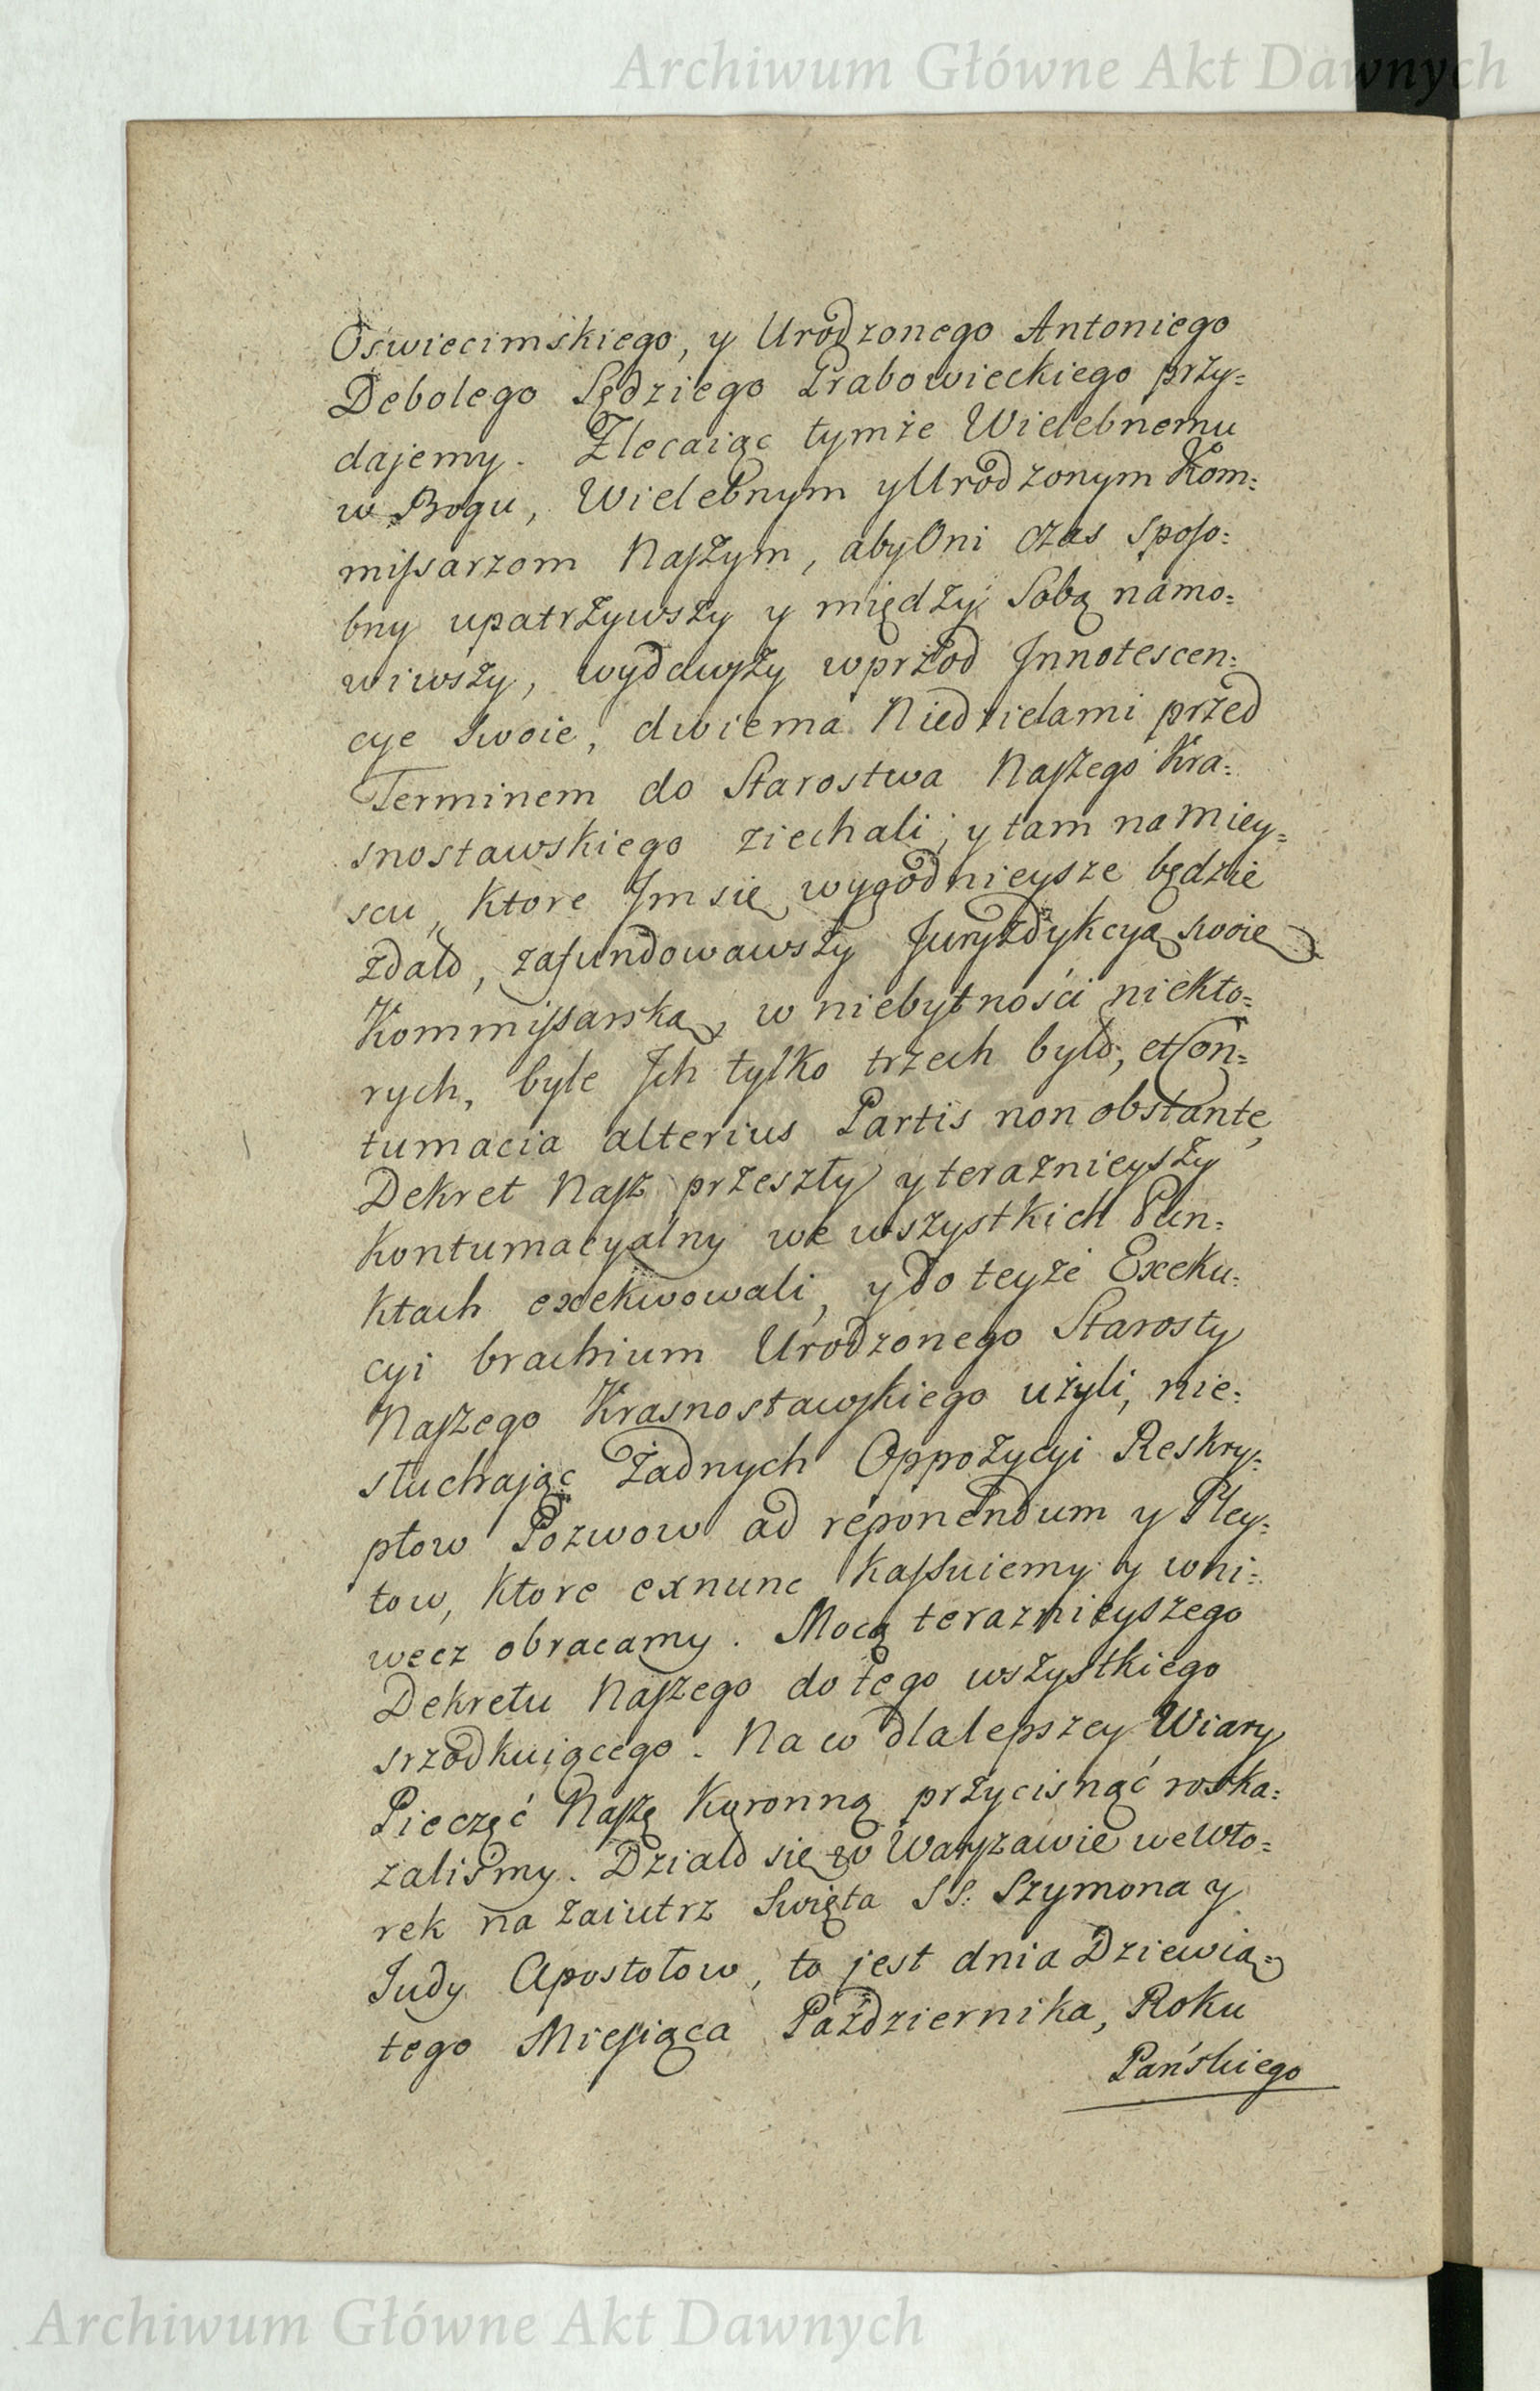 Archiwum Główne Akt Dawnych
Oświecimskiego, y Urodzonego Antoniego
Debolego Sędziego Grabowieckiego przy=
dajemy. Zlecaiąc tymże Wielebnemu
w Bogu, Wielebnym y Urodzonym Kom=
missarzom Naszym, aby Oni czas sposo=
bny upatrzywszy y między Sobą namo=
wiwszy, wydawszy wprzod Innotescen=
cye swoie, dwiema Niedzielami przed
Terminem do Starostwa Naszego Kra=
snostawskiego ziechali, y tam na miey=
scu, ktore Im się wygodnieysze będzie
zdało, zafundowawszy Juryzdykcyą swoię
Kommissarską, w niebytności niekto=
rych, byle Ich tylko trzech było, et Con=
tumacia alterius Partis non obstante,
Dekret Nasz przeszły y teraznieyszy
Kontumacyalny we wszystkich Pun=
ktach exekwowali, y do teyże Exeku=
cyi brachium Urodzonego Starosty
Naszego Krasnostawskiego użyli, nie=
słuchając żadnych Oppozycyi Reskry=
ptow Pozwow ad reponendum y Gley=
tow, ktore exnunc kassuiemy y wni=
wecz obracamy. Mocą teraznieyszego
Dekretu Naszego do tego wszystkiego
srzodkuiącego. Na co dla lepszey Wiary
Pieczęć Naszą Koronną przycisnąć roska=
zaliśmy. Działo się w Warszawie we Wto=
rek na zaiutrz Swięta SS: Szymona y
Judy Apostołow, to jest dnia Dziewią=
tego Miesiąca Października, Roku
Pańskiego
Archiwum Główne Akt Dawnych